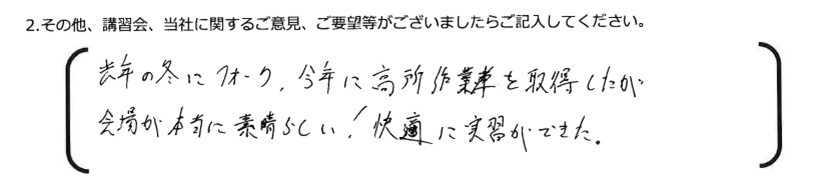 2.その他、講習会、当社に関するご意見、ご要望等がございましたらご記入してください。
去年の冬にフォーク、今年に高所作業車を取得したが
会場が本当に素晴らしい！快適に実習ができた。